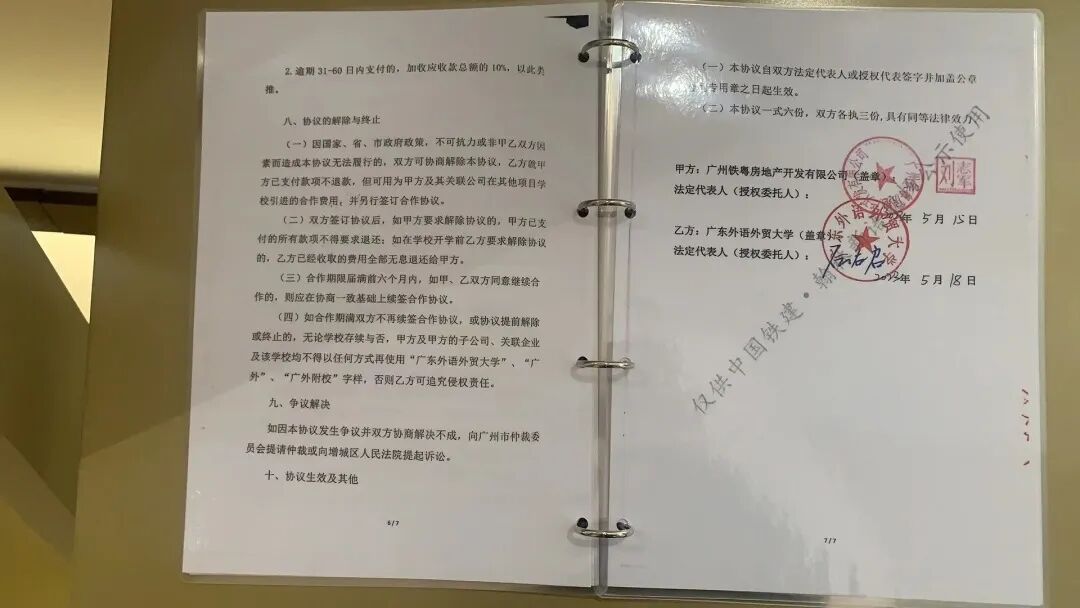 2.逾期 31-60 日内支付的，加收应收款总额的 10%，以此类
推。
八、协议的解除与终止
（一）因国家、省、市政府政策，不可抗力或非甲乙双方因
素而造成本协议无法履行的，双方可协商解除本协议，乙方就甲
方已支付款项不退款，但可用为甲方及其关联公司在其他项目学
校引进的合作费用；并另行签订合作协议。
（二）双方签订协议后，如甲方要求解除协议的，甲方已支
付的所有款项不得要求退还；如在学校开学前乙方要求解除协议
的，乙方已经收取的费用全部无息退还给甲方。
（三）合作期限届满前六个月内，如甲、乙双方同意继续合
作的，则应在协商一致基础上续签合作协议。
（四）如合作期满双方不再续签合作协议，或协议提前解除
或终止的，无论学校存续与否，甲方及甲方的子公司、关联企业
及该学校均不得以任何方式再使用“广东外语外贸大学”、“广
外”、“广外附校”字样，否则乙方可追究侵权责任。
九、争议解决
如因本协议发生争议并双方协商解决不成，向广州市仲裁委
员会提请仲裁或向增城区人民法院提起诉讼。
十、协议生效及其他
6/7
（一）本协议自双方法定代表人或授权代表签字并加盖公章
专用章之日起生效。
（二）本协议一式六份，双方各执三份，具有同等法律效力
甲方：广州铁粤房地产开发有限公司（盖章）
法定代表人（授权委托人）：
刘志军
5 月 15 日
乙方：广东外语外贸大学（盖章）
法定代表人（授权委托人）：
5 月 18 日
仅供中国铁建·公示使用
7/7